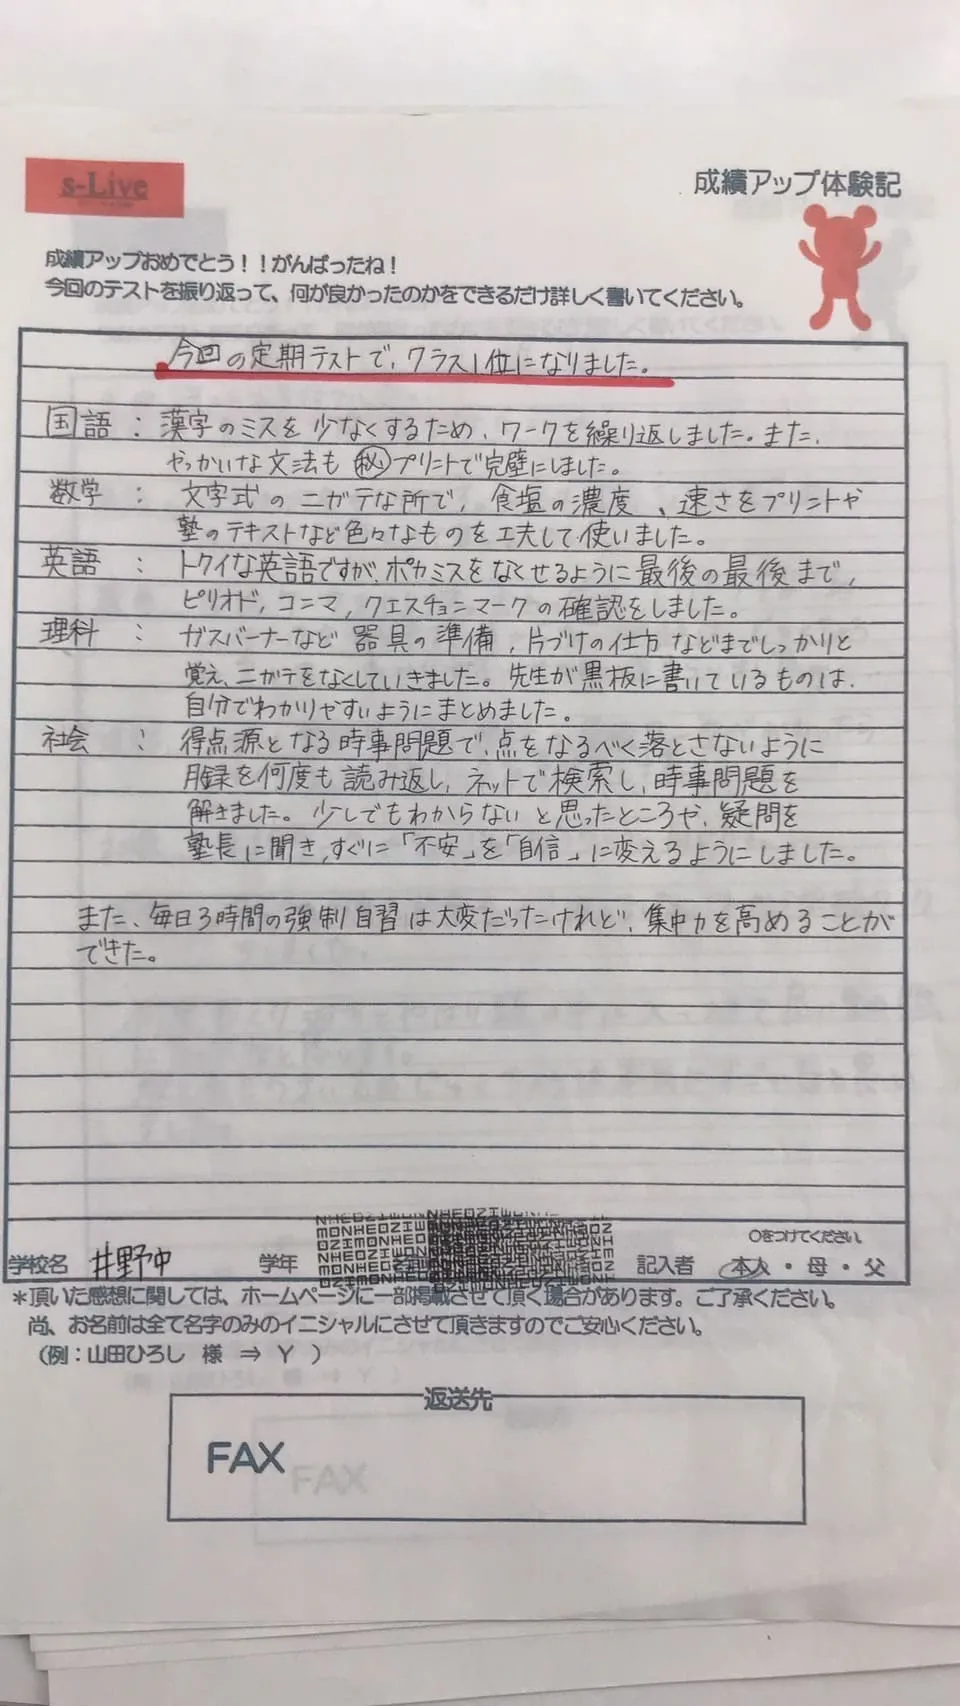 s-Live
成績アップ体験記
成績アップおめでとう！！がんばったね！
今回のテストを振り返って、何が良かったのかをできるだけ詳しく書いてください。
今回の定期テストで、クラス1位になりました。
国語：漢字のミスを少なくするため、ワークを繰り返しました。また、
やっかいな文法も㊙プリントで完璧にしました。
数学：文字式のニガテな所で、食塩の濃度、速さをプリントや
塾のテキストなど色々なものを工夫して使いました。
英語：トクイな英語ですが、ポカミスをなくせるように最後の最後まで、
ピリオド、コンマ、クエスチョンマークの確認をしました。
理科：ガスバーナーなど器具の準備、片づけの仕方などまでしっかりと
覚え、ニガテをなくしていきました。先生が黒板に書いているものは、
自分でわかりやすいようにまとめました。
社会：得点源となる時事問題で、点をなるべく落とさないように
月録を何度も読み返し、ネットで検索し、時事問題を
解きました。少しでもわからないと思ったところや、疑問を
塾長に聞き、すぐに「不安」を「自信」に変えるようにしました。
また、毎日3時間の強制自習は大変だったけれど、集中力を高めることが
できた。
○をつけてください。
学校名 井野中 学年 記入者 本人・母・父
＊頂いた感想に関しては、ホームページに一部掲載させて頂く場合があります。ご了承ください。
尚、お名前は全て名字のみのイニシャルにさせて頂きますのでご安心ください。
（例：山田ひろし 様 ⇒ Y ）
返送先
FAX